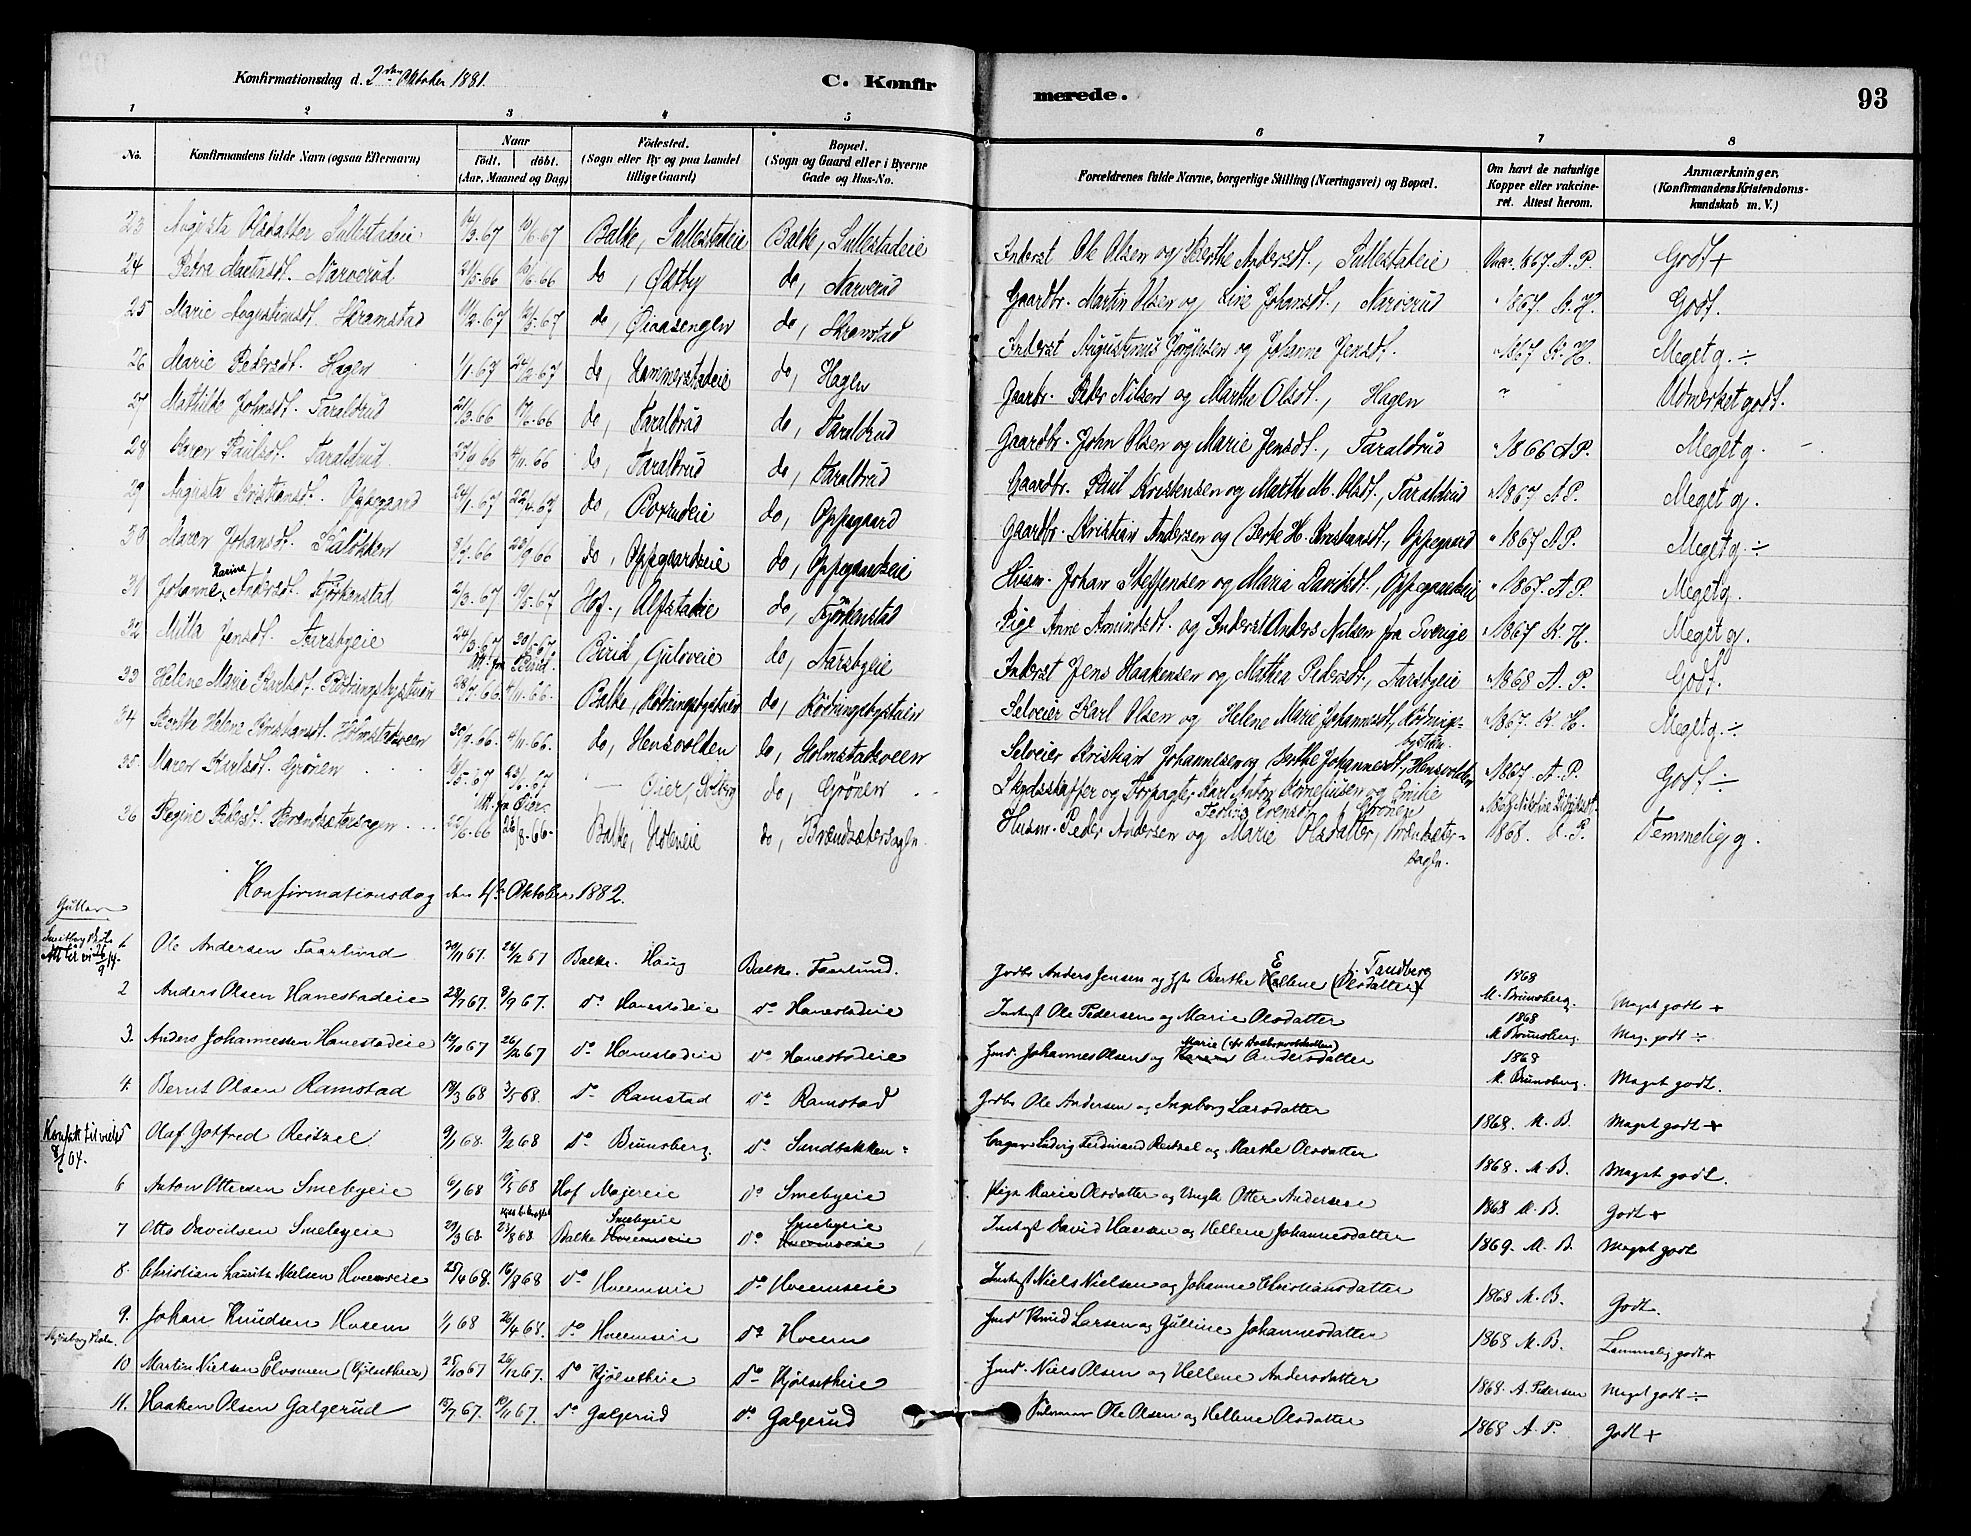 Konfirmationsdag d. 2den Oktober 1881.
C. Konfirmerede.
93
1 2 3 4 5 6 7 8
No. Konfirmandens fulde Navn (ogsaa Efternavn) Naar födt. döbt. (Aar, Maaned og Dag) Födested. (Sogn eller By og paa Landet tillige Gaard) Bopæl. (Sogn og Gaard eller i Byerne Gade og Hus-No. Forældrenes fulde Navne, borgerlige Stilling (Næringsvei) og Bopæl. Om havt de naturlige Kopper eller vakcineret. Attest herom. Anmærkninger. (Konfirmandens Kristendomskundskab m. V.)
23 Augusta Olsdatter Sullestadeie 14/3.67 10/6.67 Balke, Sullestadeie Balke, Sullestadeie Inderst Ole Olsen og Berthe Andersdt., Sullestadeie Vacc. 1867. A. P. Godt +
24 Petra Martinsdt. Narverud 21/5.66 10/6.66 do, Østby do, Narverud Gaardbr. Martin Olsen og Line Johansdt., Narverud " 1867. K. H. Godt.
25 Marie Augustinusdt. Skramstad 11/2.67 12/5.67 do, do, Skramstad Inderst Augustinus Jörgensen og Johanne Jensdt. " 1867 K. H. Meget g. ÷
26 Marie Pedersdt. Hagen 1/1.67 24/2.67 do, Hammerstadeie do, Hagen Gaarbr. Peder Nilsen og Marthe Olsdt., Hagen " Udmerket godt.
27 Mathilde Johnsdt. Taraldrud 21/3.66 17/6.66 do, Taraldrud do, Taraldrud Gaardbr. John Olsen og Marie Jensdt., Taraldrud " 1866 A P. Meget g.
28 Karen Paulsdt. Taraldrud 4/11.66 do, Taraldrud do, Taraldrud Gaardbr. Paul Kristensen og Marthe M. Olsdt., Taraldrud " 1867 A P. Meget g.
29 Augusta Kristiansdt. Oppegaard 24/1.67 22/4.67 do, do, Oppegaard Gaardbr. Kristian Andersen og Berte H. Kristiansdt., Oppegaard " 1867 A P. Meget g. ÷
30 Maren Johansdt. 8/7.66 23/9.66 do, Oppegaardseie do, Oppegaardseie Husm. Johan Steffensen og Maria Davidsdt., Oppegaardseie " 1867. A P. Meget g.
31 Johanne Karine Andersdt. Fjörkenstad 2/3.67 19/5.67 Hof, Alfstadeie do, Fjörkenstad Pige Anne Amundsdt. og Inderst Anders Nilsen fra Sverige " 1867 K. H. Meget g.
32 Mitta Jensdt. Aarsbyeie 24/3.67 30/5.67. Att. fra Birid. Birid, Guloveie do, Aarsbyeie Inderst Jens Haakensen og Mathea Pedersdt., Aarsbyeie " 1868 A. P. Godt.
33 Helene Marie Karlsdt. Rödningsbystuen 28/7.66 4/11.66. Balke, Rödningsbystuen do, Rödningsbystuen Selveier Karl Olsen og Helene Marie Johannesdt., Rödningsbystuen. " 1867. K. H. Meget g. ÷
34 Berthe Helene Kristiansdt. Holmstadsveen 30/9.66. 4/11.66. do, Hensvolden do, Holmstadsveen Selveier Kristian Johannesen og Berthe Johannesdt., Hensvolden " 1867. A. P. Godt ÷
35. Maren Karlsdt. Grönen 23/6.67 Att. fra Öier. — Öier, Solberg do, Grönen Skydsskaffer og Forpagter Karl Anton Korneliusen og Emilie Evensdt., Grönen
36 Regine Pedersdt. Brændsætersagen 26/8.66. Balke, Holeneie do, Brændsætersagen. Husm. Peder Andersen og Marie Olsdatter, Brændsætersagen. 1868. A. P. Temmelig g.
Konfirmationsdag den 1ste Oktober 1882.
Gutter
1 Ole Andersen Faarlund 29/11 67. 26/12 67 Balke. Haug Balke. Faarlund. Gdbr Anders Jensen og Hst Berthe Hellene (Olsdatter) Tandberg 1868 M. Brunsberg. Meget godt +
2 Anders Olsen Hanestadeie 28/7 67. 8/9 67. do Hanestadeie do Hanestadeie Inderst Ole Pedersen og Marie Olsdatter 1868 M. Brunsberg. Meg. godt ÷
3. Anders Johannessen Hanestadeie 19/10 67 26/12 67 do Hanestadeie do Hanestadeie Hmd. Johannes Olsen og Marie Andersdatter 1868 M. Brunsberg. Meget godt.
4. Bernt Olsen Ramstad 19/3 68 3/5 68. do Ramstad do Ramstad Gdbr Ole Andersen og Ingeborg Larsdatter 1868. M. B. Meget godt +
Konf.att. til vielse 04.
Olaf Gotfred Reitzel 9/1 68. 9/2 68 do Brunsberg do Sundbakken Ludvig Ferdinand Reitzel og Marthe Olsdatter 1868. M. B. Meget godt.
6 Anton Ottersen Smebyeie 6/1 68 Hof Majereie do Smebyeie Pige Marie Olsdatter og Ungk. Otter Andersen 1868 M. B. Godt +
7 Otto Davidsen Smebyeie 29/3 68. 23/8 68 Balke Smebyeie Hveemseie do Smebyeie Hveemseie Inderst David Hansen og Hellene Johannesdatter 1869. M. B. Meget godt
8. Christian Lauritz Nielsen Hveemseie 25/4 68. 16/8 68 do Hveemseie do Hveemseie Inderst Niels Nielsen og Johanne Christiansdatter 1868 M. B. Godt.
9. Johan Knudsen Hveem 1/1 68 26/4 68. do Hveemseie do Hveem Hmd Knud Larsen og Gulline Johannesdatter 1868 M. B. Temmelig godt +
10 Martin Nielsen Elvsveen (Kjölsetheie) 25/10 67 26/12 67. do Kjölsetheie do Kjölsetheie Hmd. Niels Olsen og Hellene Andersdatter 1868. A. Pedersen Meget godt ÷
11. Haaken Olsen Galgerud 15/7 67. 19/11 67. do Galgerud do Galgerud Ole Olsen og Hellene Olsdatter 1868 A. P. Godt +